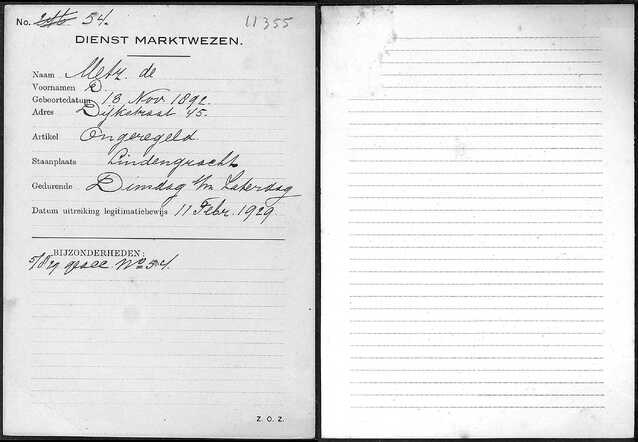 No. 54.
11355
DIENST MARKTWEZEN.
Naam Metz. de
Voornamen D.
Geboortedatum 13 Nov 1892.
Adres Dijkstraat 45.
Artikel Ongeregeld.
Staanplaats Lindengracht
Gedurende Dinsdag t/m Zaterdag
Datum uitreiking legitimatiebewijs 11 Febr. 1929
BIJZONDERHEDEN:
5/8 29 No 54.
Z. O. Z.